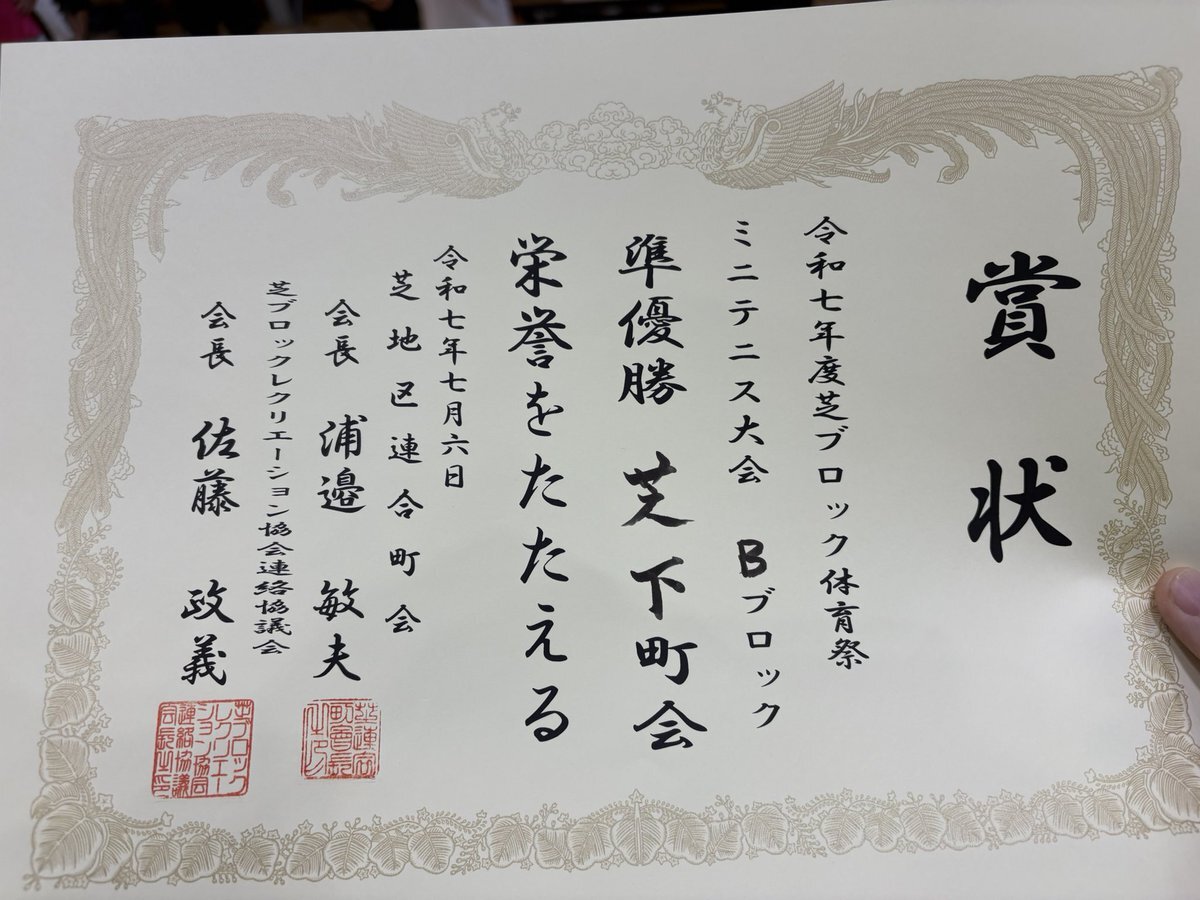 賞状
令和七年度芝ブロック体育祭
ミニテニス大会 Bブロック
準優勝 芝下町会
栄誉をたたえる
令和七年七月六日
芝地区連合町会
会長 浦邉 敏夫
芝ブロックレクリエーション協会連絡協議会
会長 佐藤 政義
芝ブロック
レクリエー
ション協会
連絡協議
会長之印